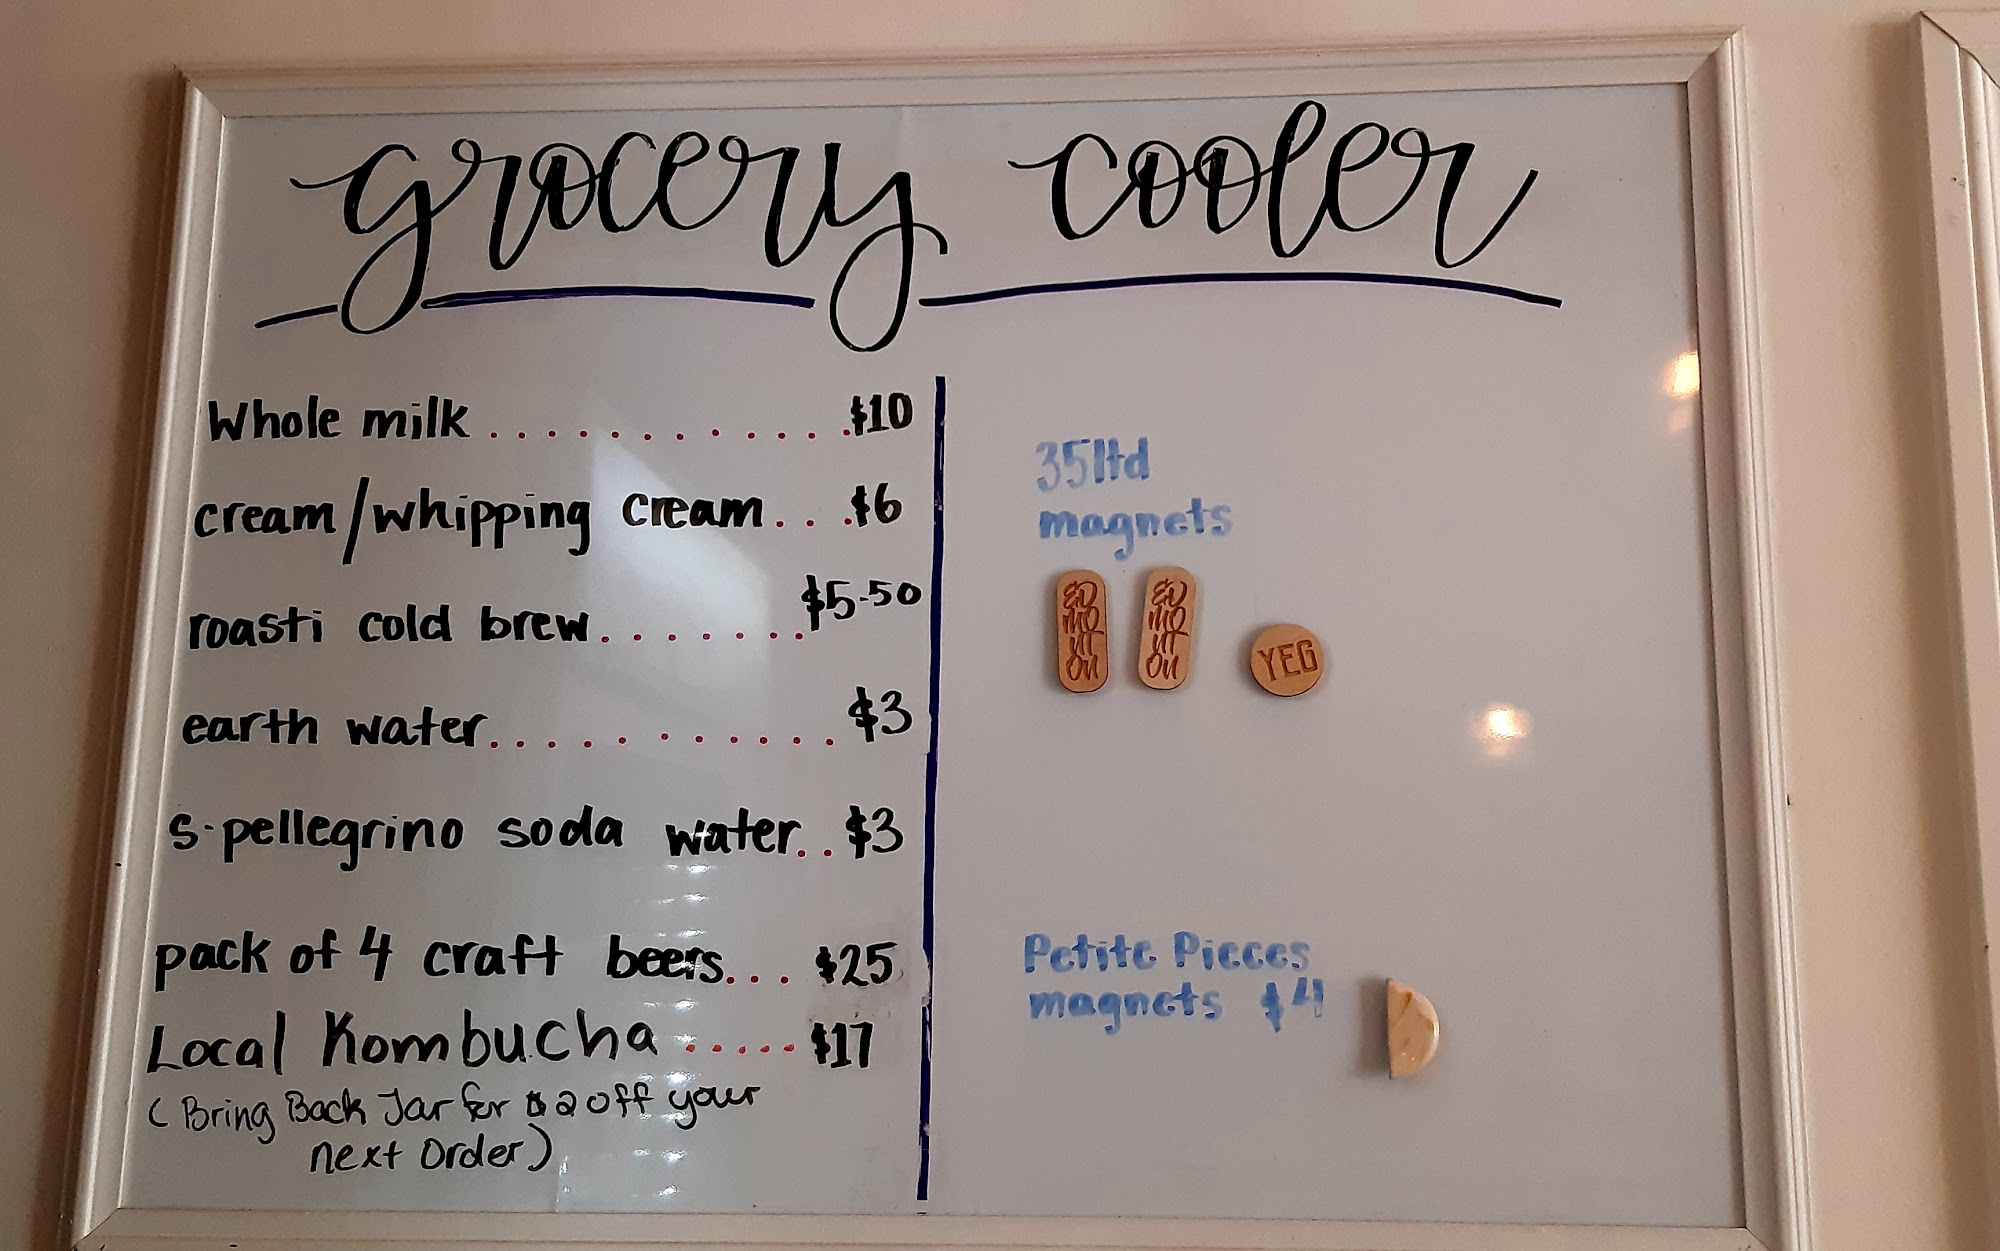 grocery cooler
Whole milk ............. $10
cream/whipping cream... $6
roasti cold brew........ $5.50
earth water............ $3
s.pellegrino soda water.. $3
pack of 4 craft beers... $25
Local Kombucha ..... $17
(Bring Back Jar for $2 off your
next Order)
35ltd
magnets
ED
MO
NT
ON
ED
MO
NT
ON
YEG
Petite Pieces
magnets $4